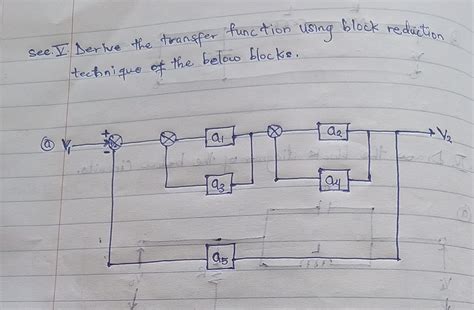 sec V Derive the transfer function using block reduction
technique of the below blocks.
ⓐ V₁ + - a₁ a₂ V₂
a₃ a₄
a₅